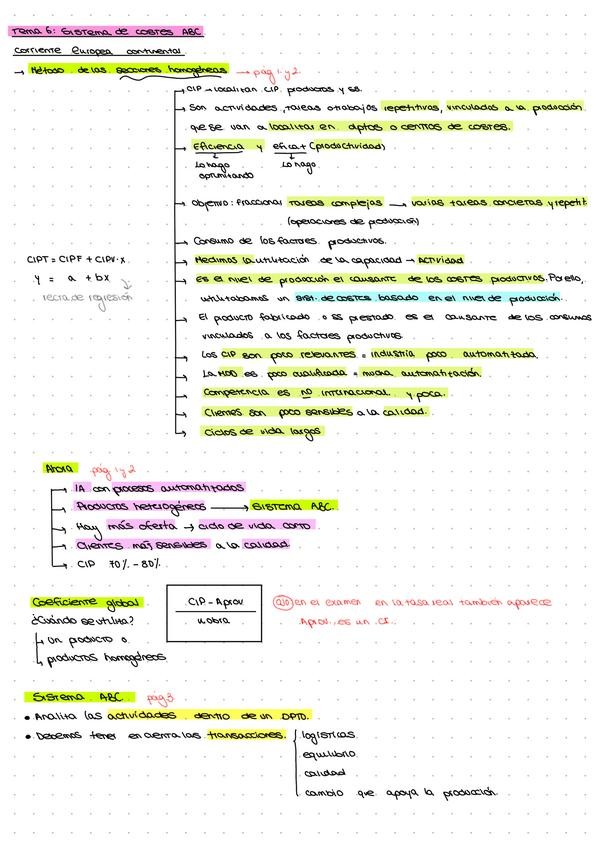 Tema 6: SISTEMA DE COSTES ABC
Corriente Europea continental
→ Método de las secciones homogéneas → pág 1 y 2
→ CIP → localizan CIP productos y ss.
→ Son actividades, tareas o trabajos repetitivos, vinculados a la producción
que se van a localizar en dptos o centros de costes.
→ Eficiencia y efica + (productividad)
lo hago optimizando
lo hago
→ Objetivo: fraccionar tareas complejas → varias tareas concretas y repetit
(operaciones de producción)
→ Consumo de los factores productivos.
CIPT = CIPF + CIPV · X
→ Medimos la utilización de la capacidad → ACTIVIDAD
y = a + bx
→ Es el nivel de producción el causante de los costes productivos. Por ello,
recta de regresión
utilizabamos un sist. de costes basado en el nivel de producción.
→ El producto fabricado o ss prestado es el causante de los consumos
vinculados a los factores productivos.
→ Los CIP son poco relevantes = industria poco automatizada.
→ La MOD es poco cualificada = mucha automatización.
→ Competencia es no internacional y poca.
→ Clientes son poco sensibles a la calidad.
→ Ciclos de vida largos
Ahora pág 1 y 2
→ IA con procesos automatizados
→ Productos heterogéneos → SISTEMA ABC.
→ Hay más oferta → ciclo de vida corto
→ Clientes más sensibles a la calidad
→ CIP 70% - 80%
Coeficiente global
CIP - Aprov
OJO en el examen en la tasa real también aparece
¿Cuándo se utiliza?
u.obra
Aprov. es un CF.
→ un producto o
→ productos homogéneos
SISTEMA ABC. pág 3
• Analiza las actividades dentro de un DPTO.
• Debemos tener en cuenta las transacciones. logísticas
equilibrio
calidad
cambio que apoya la producción